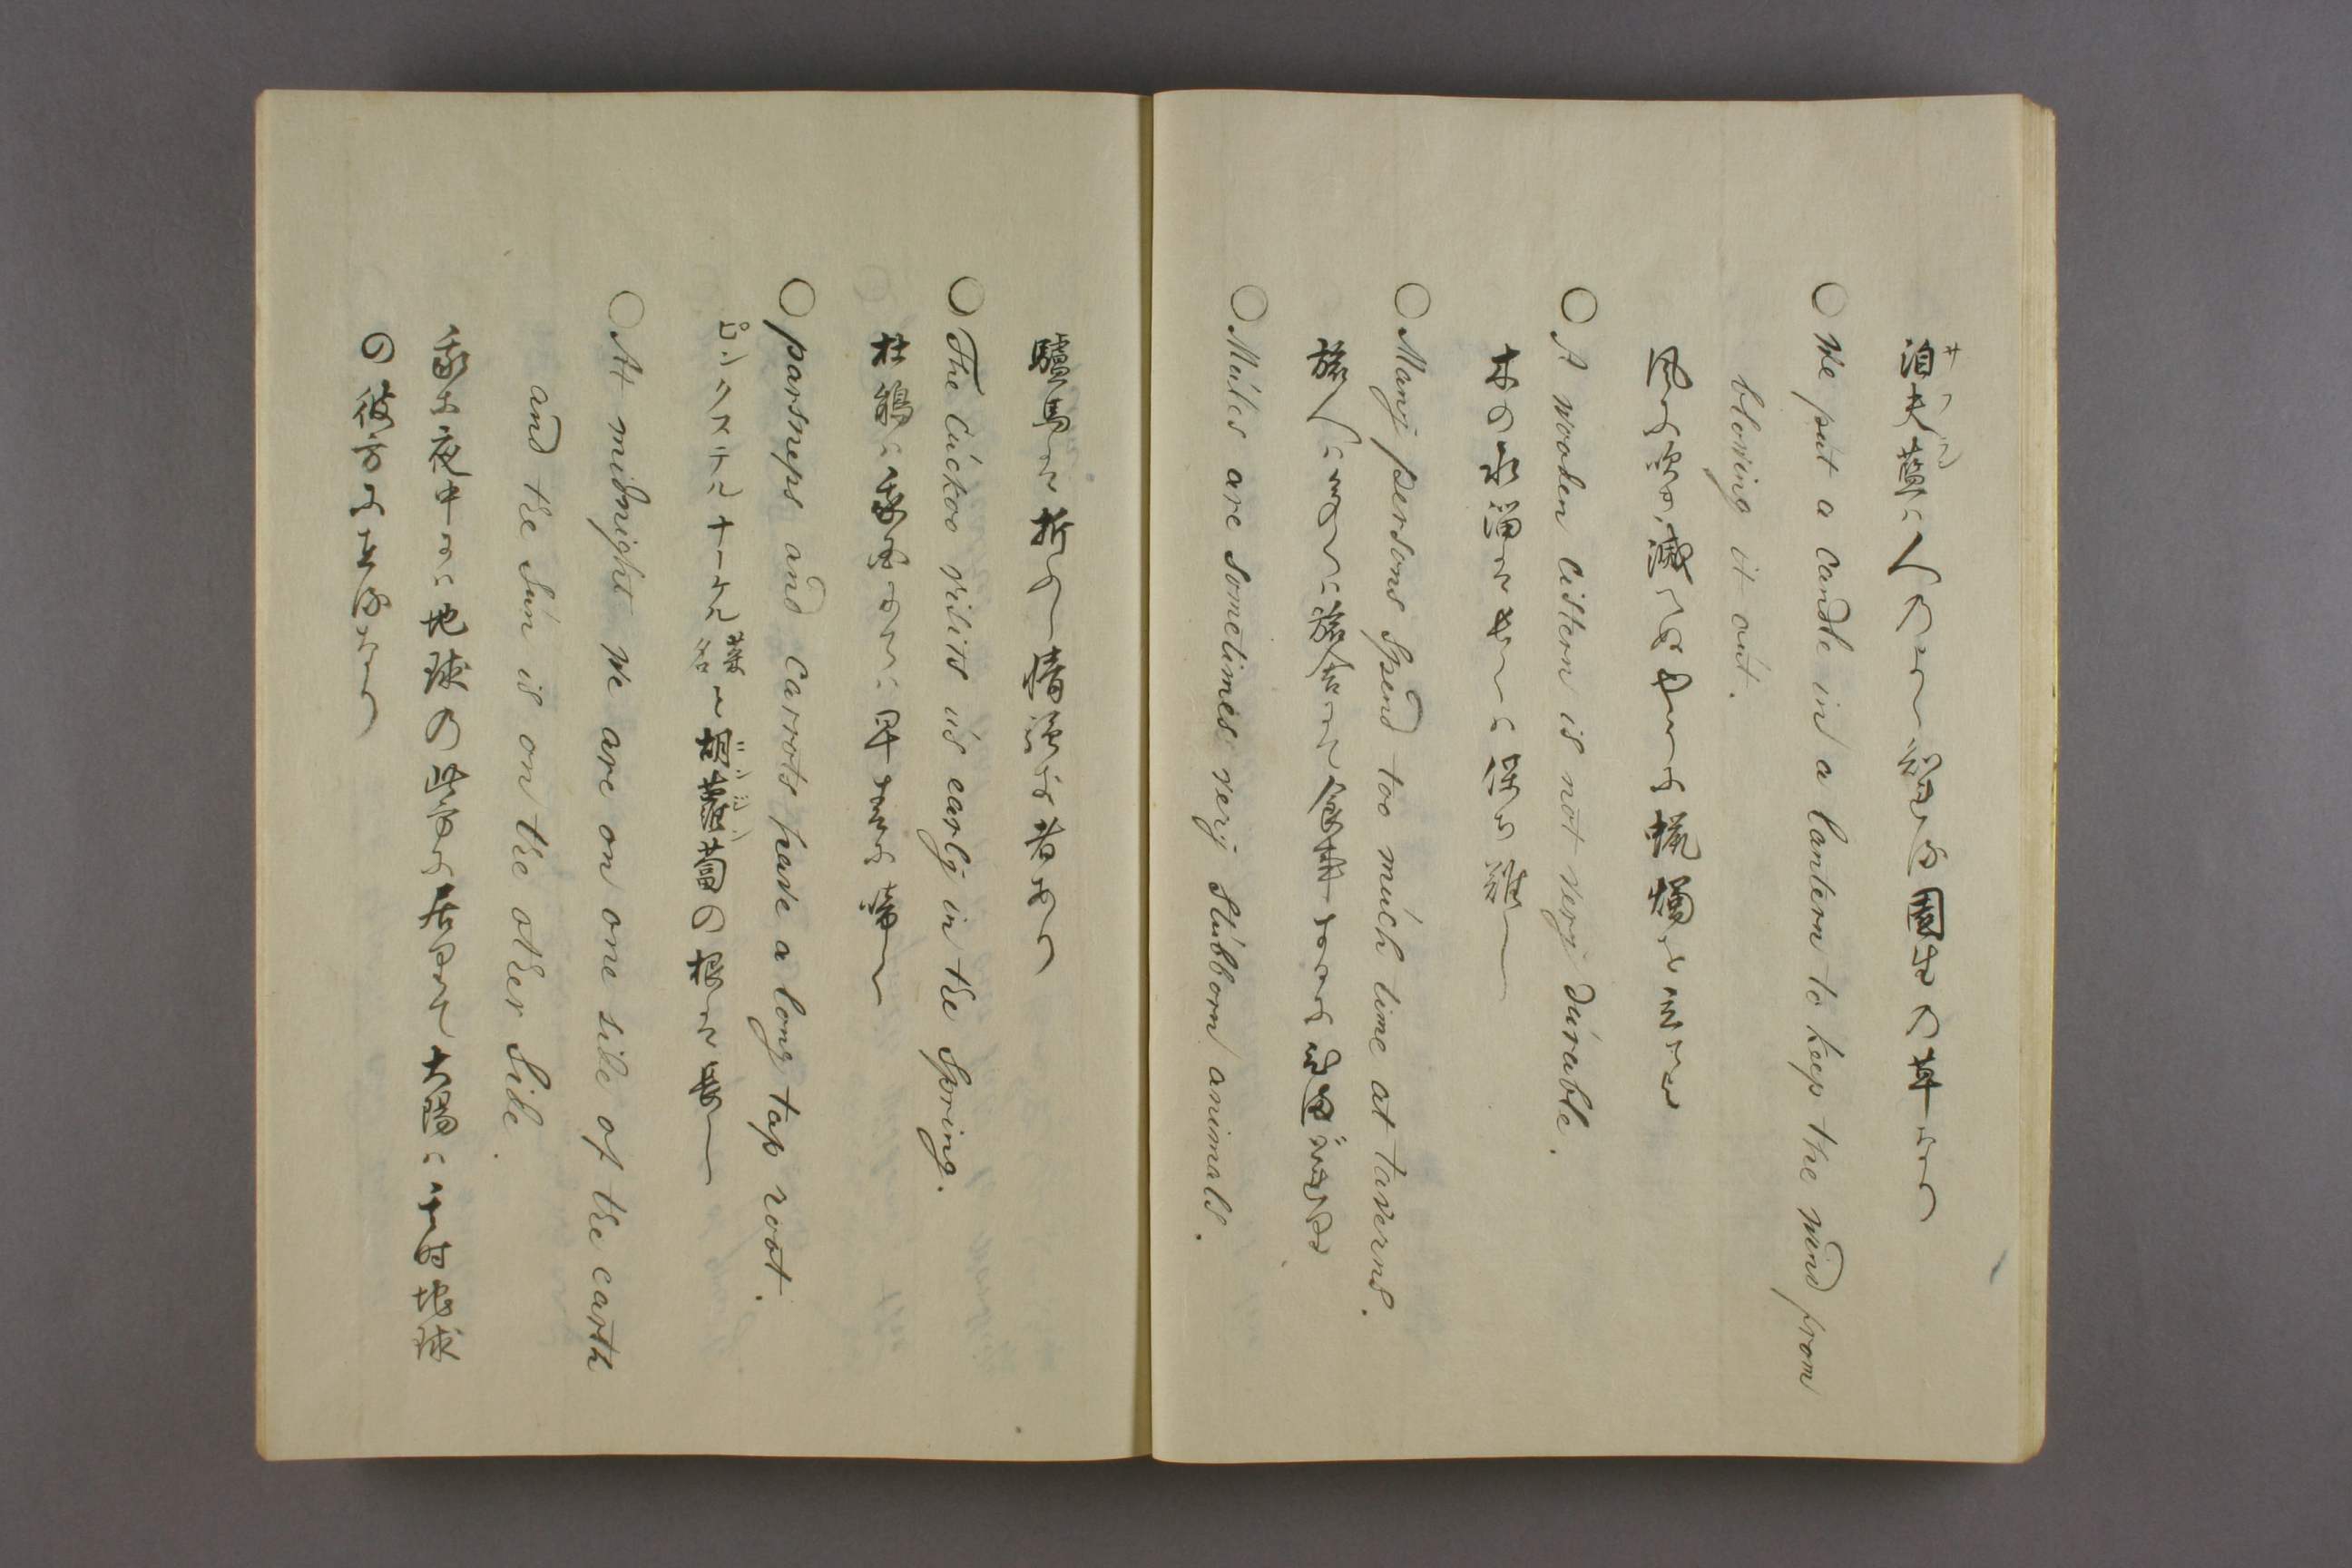 泊夫藍ハ人のよく知る園生の草なり
サフラン
○We put a candle in a lantern to keep the wind from
blowing it out.
風の吹き滅さぬやうに蝋燭を
○A wooden cistern is not very durable.
木の水溜ハ久しく保ち難し
○Many persons spend too much time at taverns.
旅人ハ多く旅舎にて
○Mules are sometimes very stubborn animals.
驢馬に折ふし情強き者あり
○The cuckoo visits us early in the spring.
杜鵑ハ我国にてハ早春に啼く
○parsneps and carrots have a long tap root.
ピンクステルナーケル菜名と胡蘿蔔の根ハ長し
ニンジン
○At midnight we are on one side of the earth
and the sun is on the other side.
我等夜中にハ地球の此方に居りて太陽ハ其時地球
の彼方に在るなり